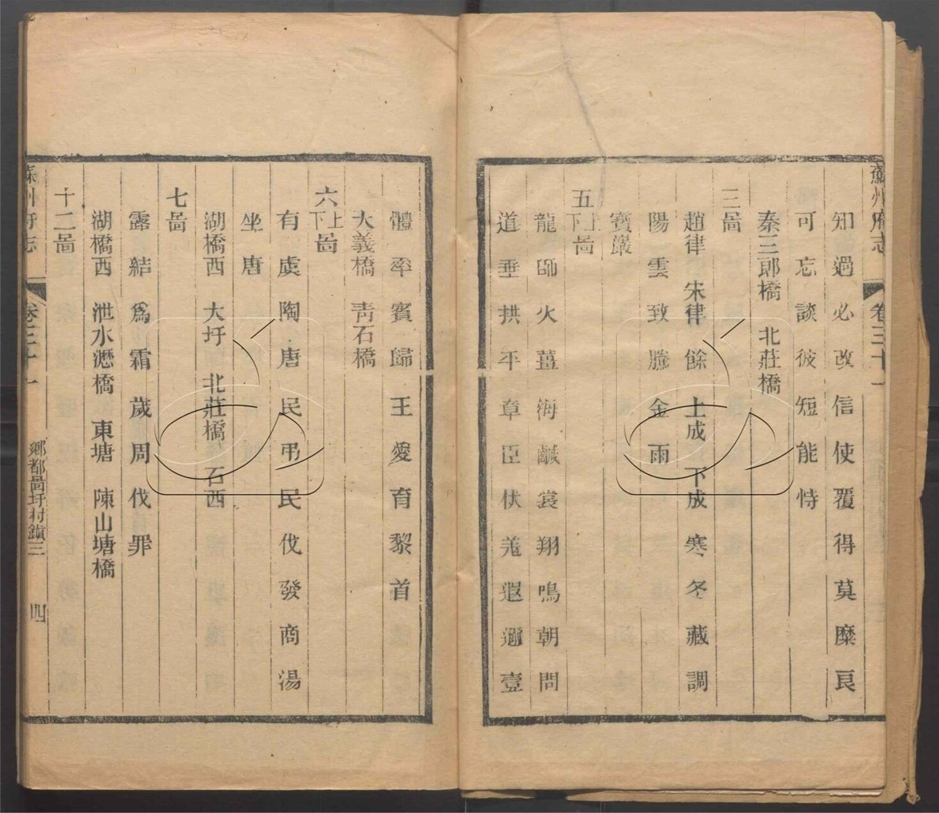 蘇州府志 卷三十一
知過必改信使覆得莫糜良
可忘談彼短能恃
秦三郎橋 北莊橋
三啚
趙律 朱律 餘 上成 下成 寒冬藏調
陽雲致騰金雨
寶嚴
五上下啚
龍師火薑海鹹裳翔鳴朝問
道垂拱平章臣伏羌遐邇壹
體率賓歸王愛育黎首
大義橋 青石橋
六上下啚
有虞陶唐民弔民伐發商湯
坐唐
湖橋西 大圩 北莊橋 石西
七啚
露結爲霜歲周伐罪
湖橋西 泄水瀝橋 東塘 陳山塘橋
十二啚
蘇州府志 卷三十一 鄉都啚圩村鎮三 四